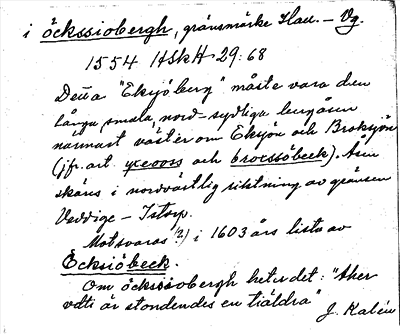 i öckssiobergh, gränsmärke Hall. – Vg.
1554 HSkH 29:68
Detta "Eksjöberg" måste vara den
långa smala, nord-sydliga bergåsen
närmast väster om Eksjön och Broksjön
(jfr. art. yxeooss och brocssöbeck). Åsen
skäres i nordvästlig riktning av gränsen
Veddige – Istorp.
Motsvaras (?) i 1603 års lista av
Ecksiöbeck.
Om öckssiobergh heter det: "ther
vdti är stondendes en tiäldra"
J. Kalén